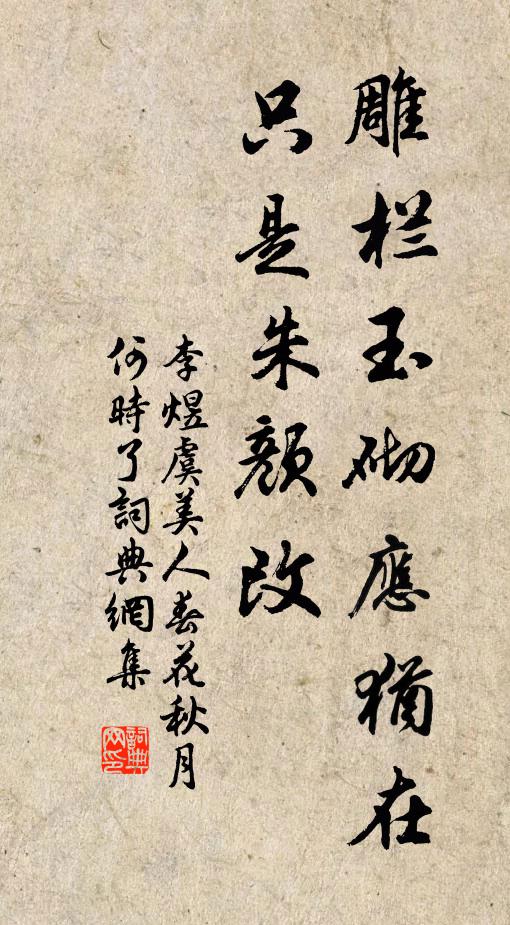 雕栏玉砌應猶在
只是朱顏改
李煜虞美人春花秋月
何時了詞典網集
詞典
网印